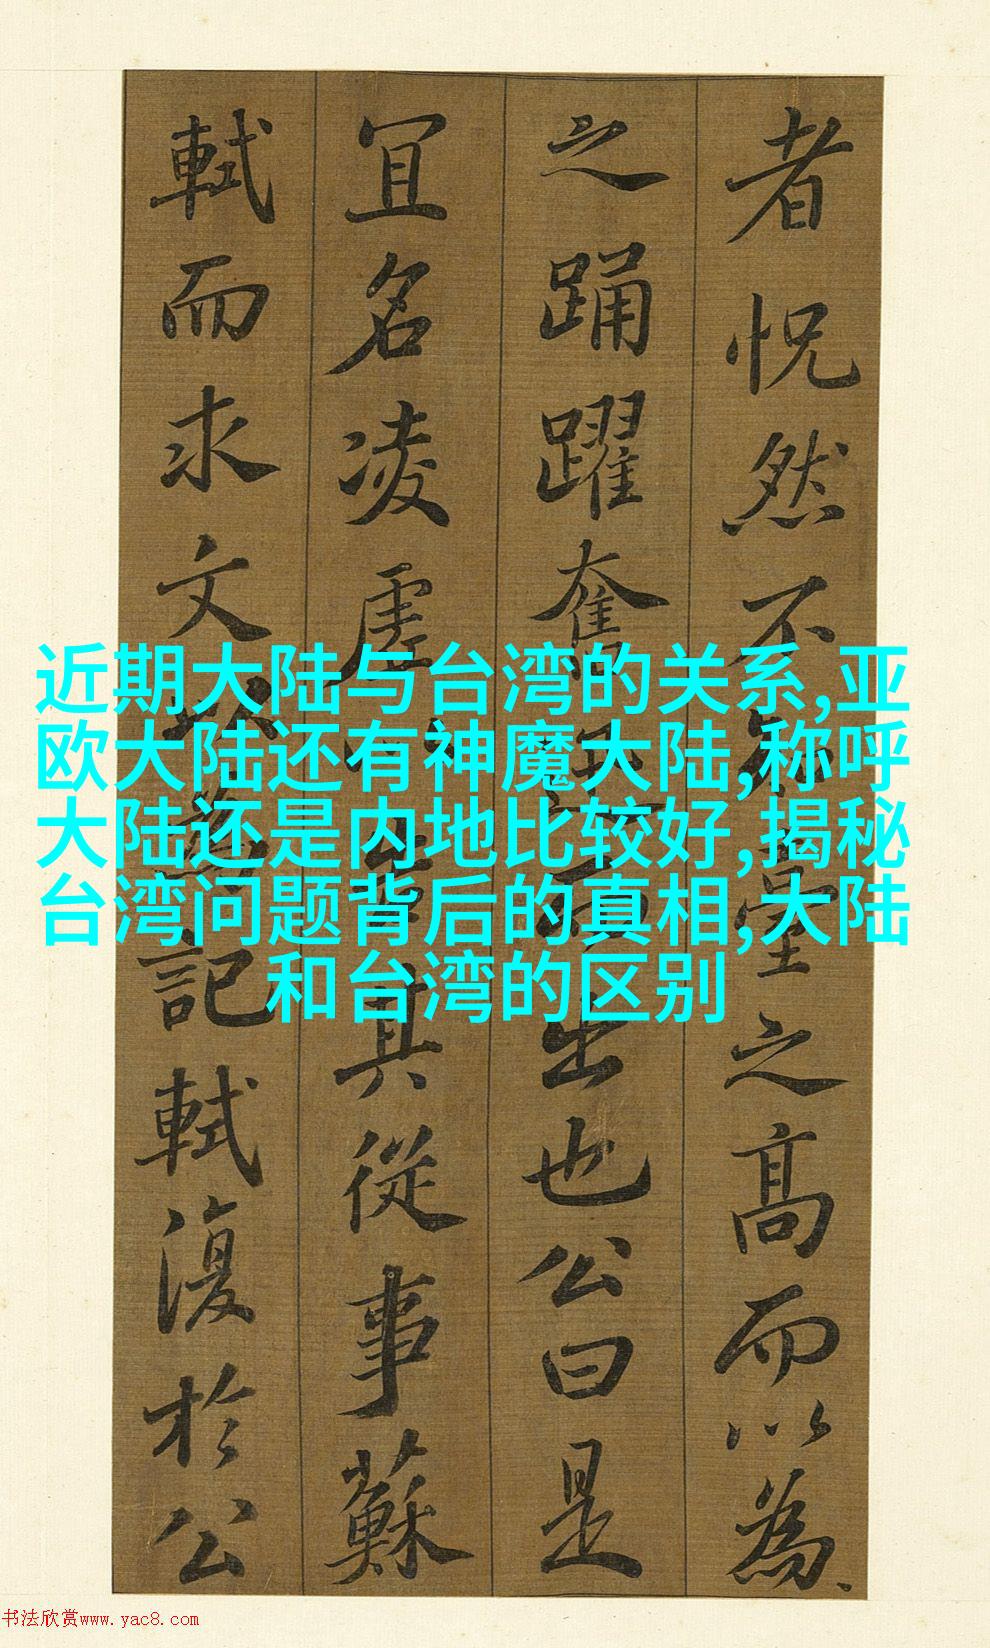 者怳然不知臺之高而以為
之踊躍奮迅而出也公曰是
宜名凌虛以告其從事蘇
軾而求文以為記軾復於公
近期大陆与台湾的关系,亚
欧大陆还有神魔大陆,称呼
大陆还是内地比较好,揭秘
台湾问题背后的真相,大陆
和台湾的区别
书法欣赏www.yac8.com